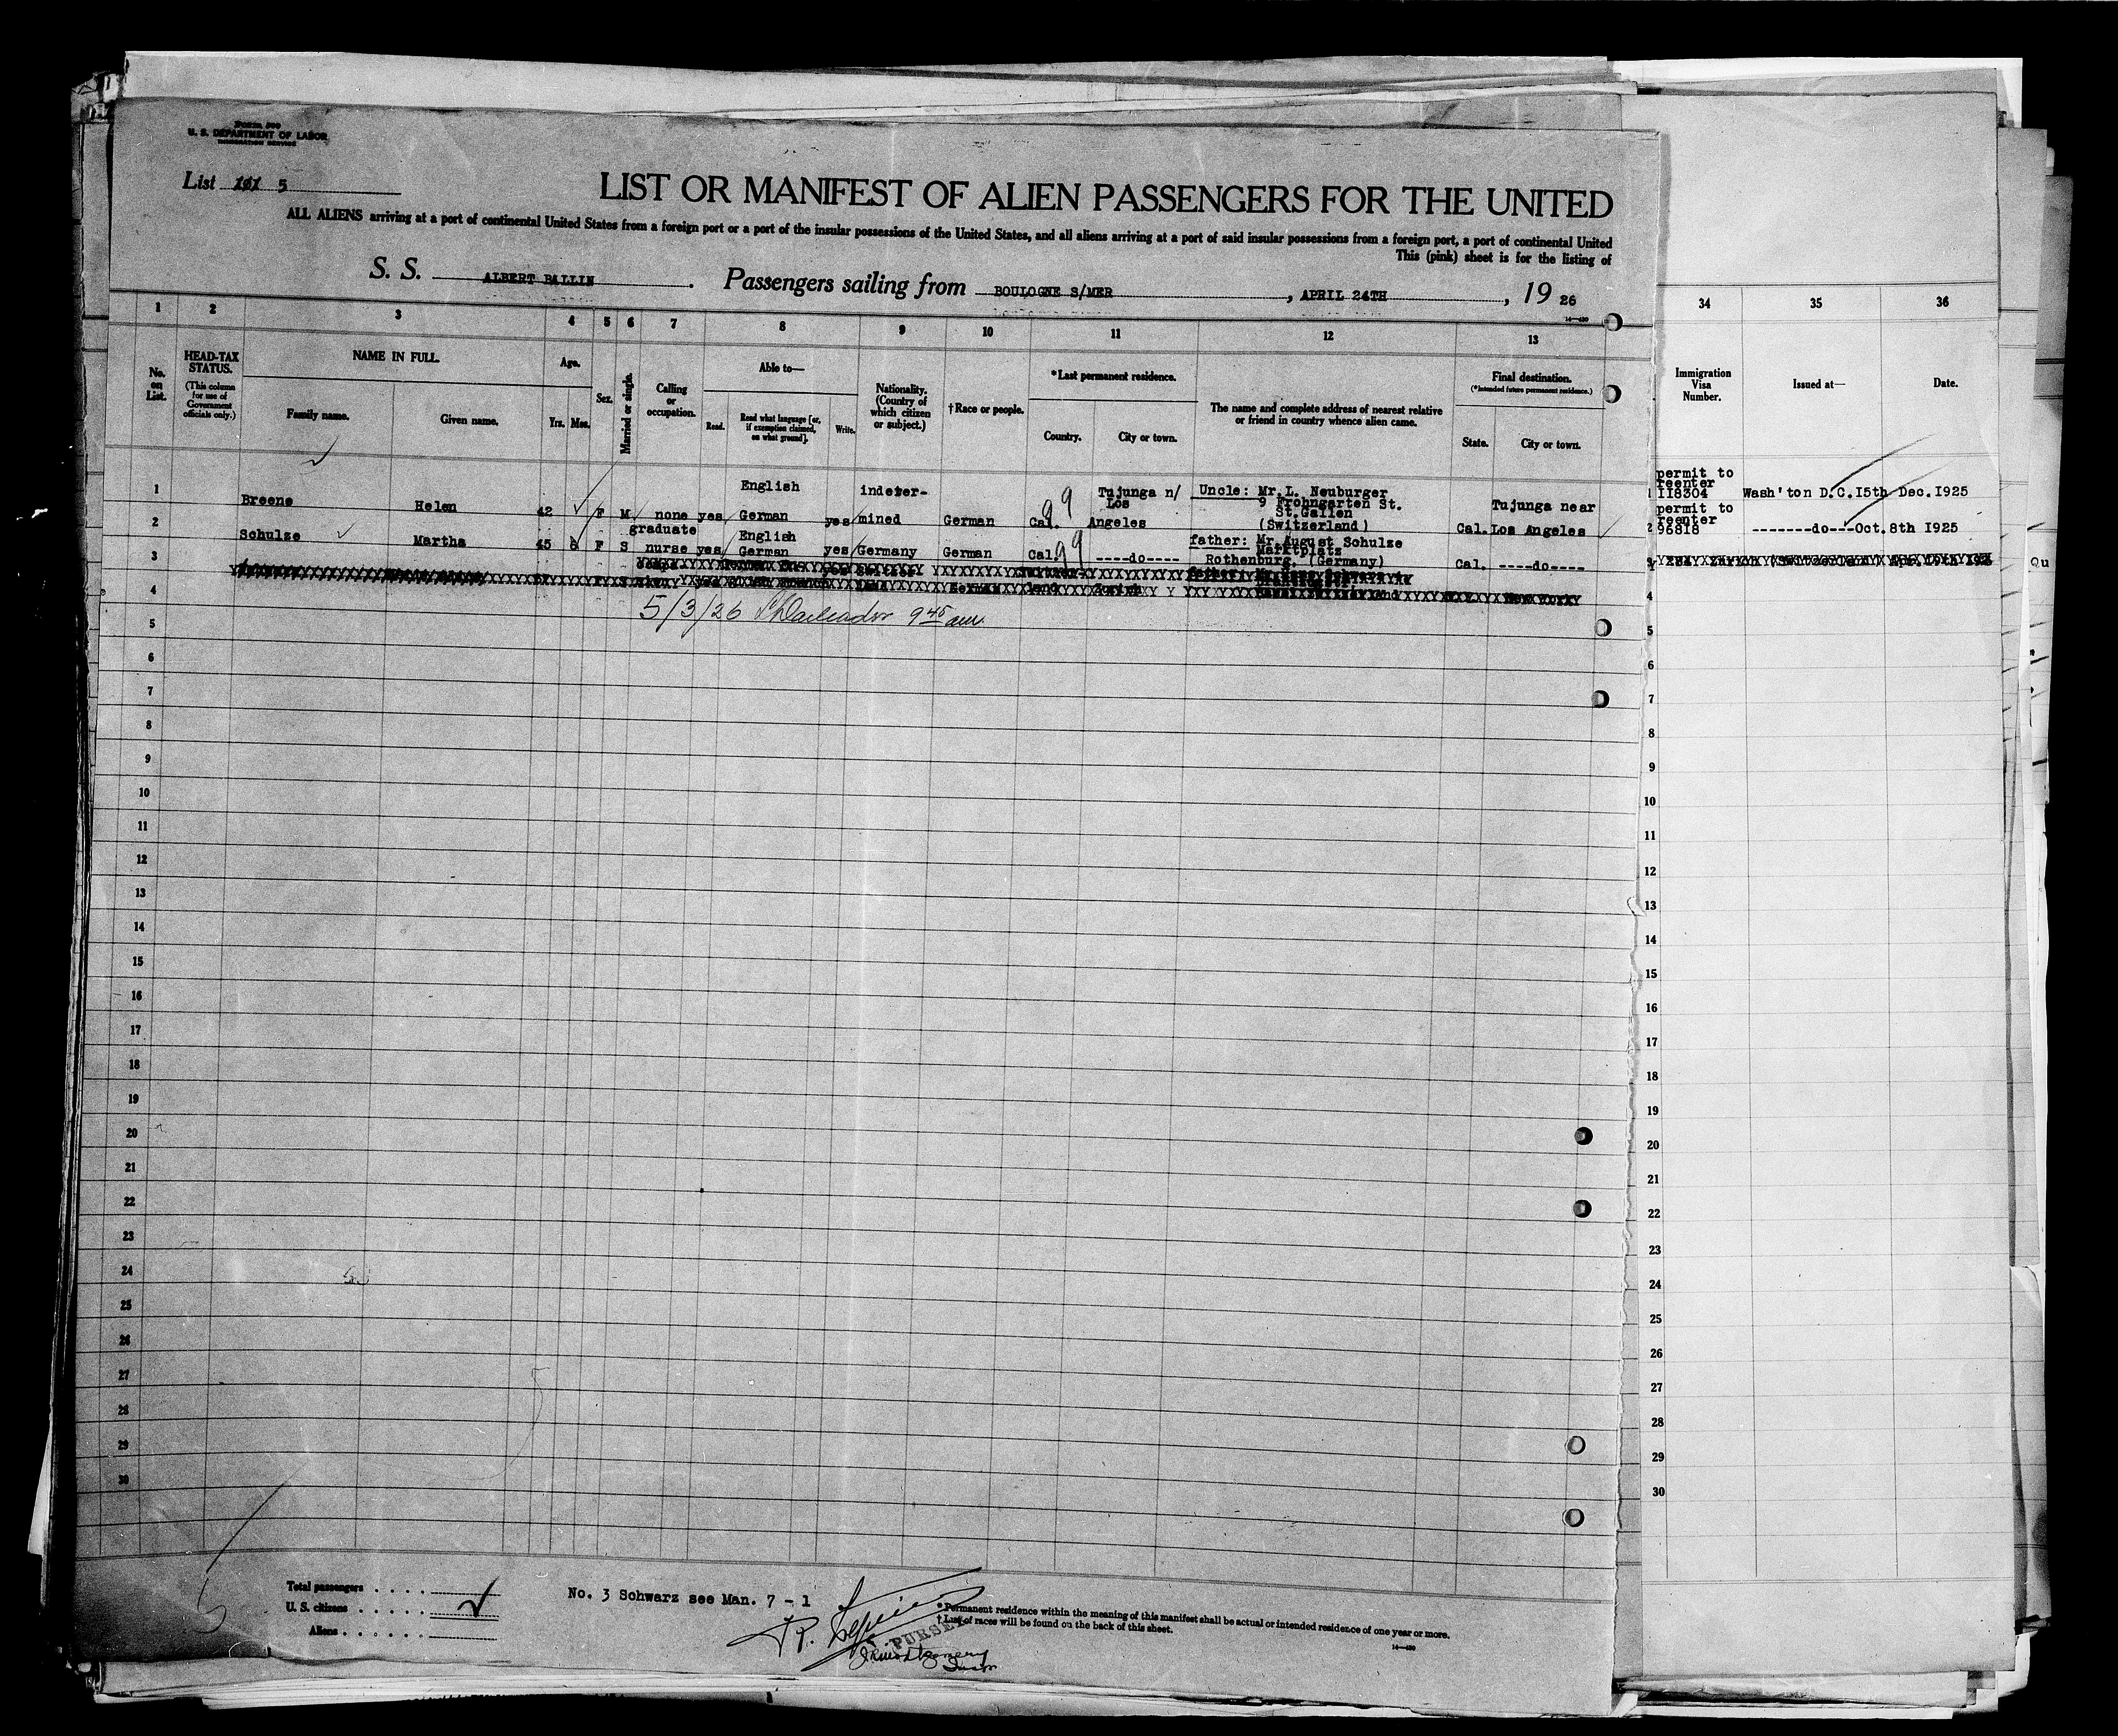 Form 500
U. S. DEPARTMENT OF LABOR
IMMIGRATION SERVICE
List 101 5
LIST OR MANIFEST OF ALIEN PASSENGERS FOR THE UNITED
ALL ALIENS arriving at a port of continental United States from a foreign port or a port of the insular possessions of the United States, and all aliens arriving at a port of said insular possessions from a foreign port, a port of continental United
This (pink) sheet is for the listing of
S. S. ALBERT BALLIN. Passengers sailing from BOULOGNE S/MER, APRIL 24TH, 19 26
1 2 3 4 5 6 7 8 9 10 11 12 13 34 35 36
No. on List.
HEAD-TAX STATUS.
(This column for use of Government officials only.)
NAME IN FULL.
Family name. Given name.
Age.
Yrs. Mos.
Sex.
Married or single.
Calling or occupation.
Able to—
Read. Read what language [or, if exemption claimed, on what ground]. Write.
Nationality. (Country of which citizen or subject.)
†Race or people.
*Last permanent residence.
Country. City or town.
The name and complete address of nearest relative or friend in country whence alien came.
Final destination.
(*Intended future permanent residence.)
State. City or town.
Immigration Visa Number.
Issued at—
Date.
1 Breene Helen 42 F M none yes English German yes indeter-mined German Cal. Tujunga n/ Los Angeles Uncle: Mr. L. Neuburger 9 Frohngarten St. St.Gallen (Switzerland) Cal. Tujunga near Los Angeles permit to reenter 118304 Wash'ton D.C. 15th Dec. 1925
2 Schulze Martha 45 6 F S graduate nurse yes English German yes Germany German Cal. ----do---- father: Mr. August Schulze Marktplatz Rothenburg. (Germany) Cal. ----do---- permit to reenter 96818 -------do---Oct. 8th 1925
3
4
5/3/26 9 45 am
5
6
7
8
9
10
11
12
13
14
15
16
17
18
19
20
21
22
23
24
25
26
27
28
29
30
Total passengers . . . .
U. S. citizens . . . . .
Aliens . . . . . .
No. 3 Schwarz see Man. 7 - 1
PURSER
* Permanent residence within the meaning of this manifest shall be actual or intended residence of one year or more.
† List of races will be found on the back of this sheet.